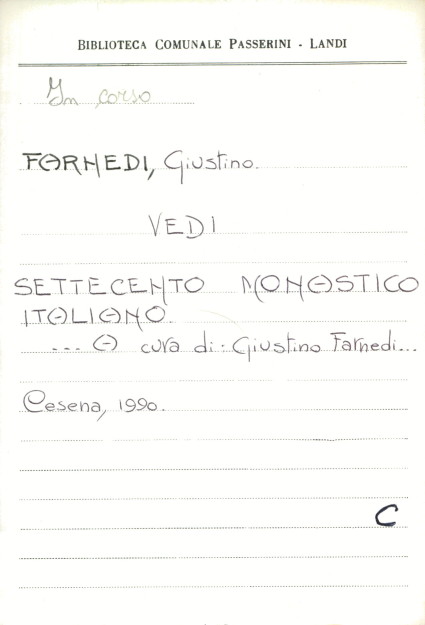 BIBLIOTECA COMUNALE PASSERINI - LANDI
In corso
FARNEDI, Giustino.
VEDI
SETTECENTO MONASTICO
ITALIANO.
... A cura di: Giustino Farnedi...
Cesena, 1990.
C